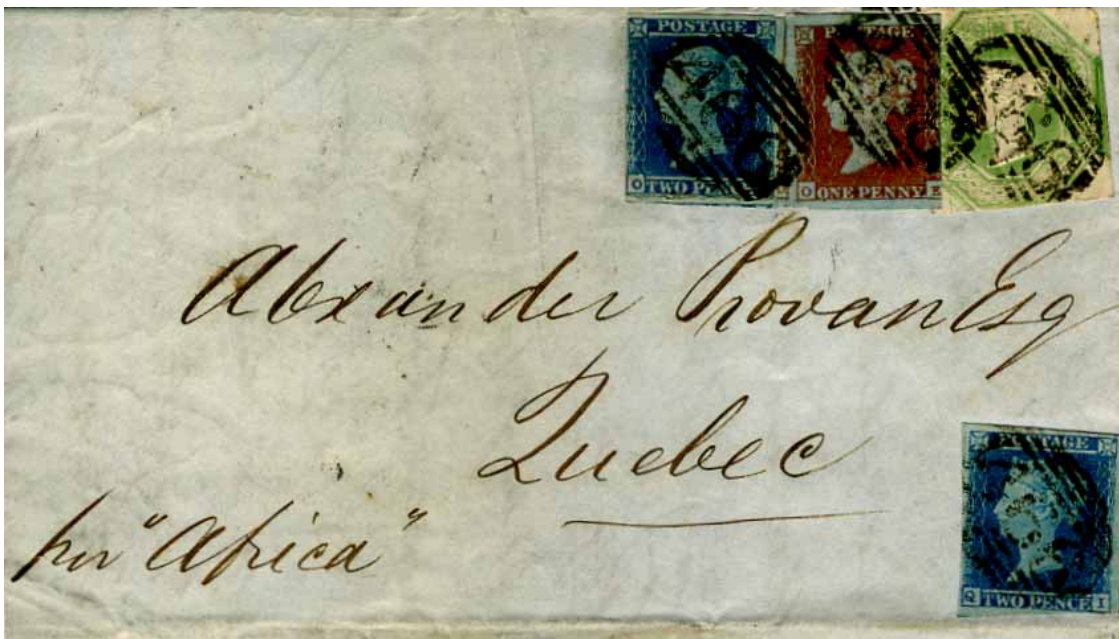 POSTAGE
O TWO PENCE
POSTAGE
O ONE PENNY E
Alexander Provan Esq
Quebec
per "Africa"
POSTAGE
Q TWO PENCE I